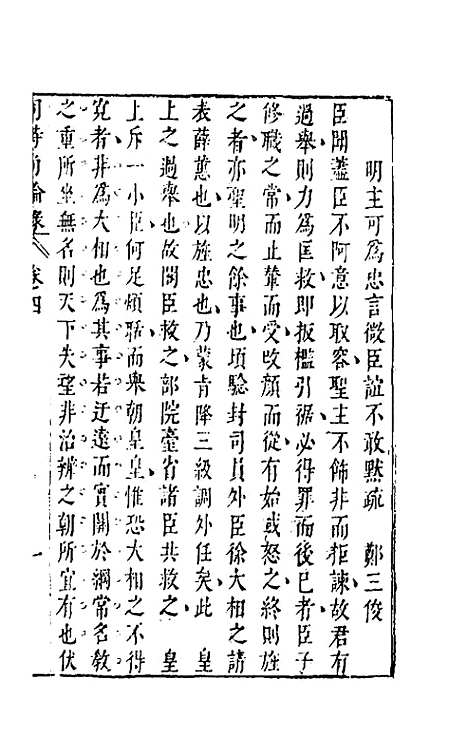 明主可為忠言微臣誼不敢默疏　鄭三俊
臣聞藎臣不阿意以取容聖主不飾非而拒諫故君有
過舉則力為匡救即扳檻引裾必得罪而後已者臣子
修職之常而止輦而受改顏而從有始或怒之終則旌
之者亦聖明之餘事也頃驗封司員外臣徐大相之請
表薛蕙也以旌忠也乃蒙旨降三級調外任矣此　皇
上之過舉也故閣臣救之部院臺省諸臣共救之　皇
上斥一小臣何足煩聒而舉朝皇皇惟恐大相之不得
寛者非為大相也為其事若迂遠而實關於綱常名教
之重所坐無名則天下失望非治辨之朝所宜有也伏
同時尚論錄　卷四　一